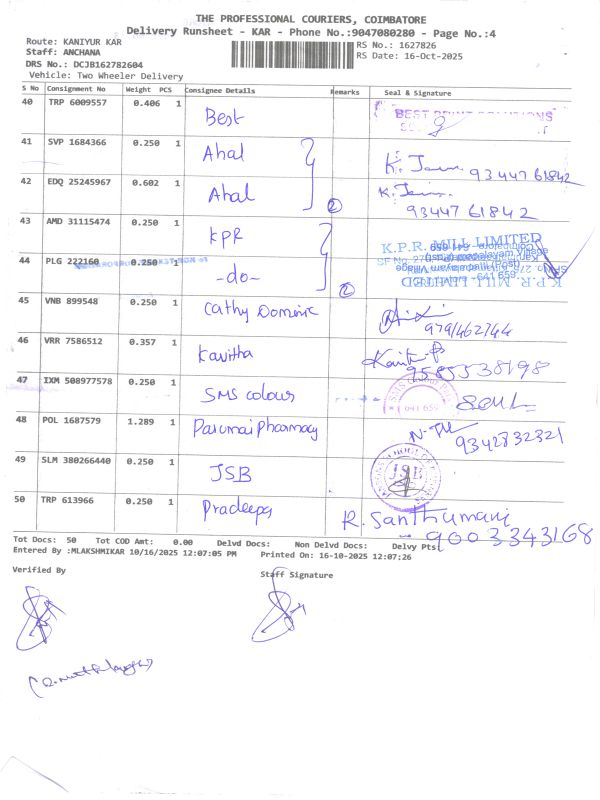 THE PROFESSIONAL COURIERS, COIMBATORE
Delivery Runsheet - KAR - Phone No.:9047080280 - Page No.:4
Route: KANIYUR KAR
Staff: ANCHANA
DRS No.: DCJB162782604
Vehicle: Two Wheeler Delivery
RS No.: 1627826
RS Date: 16-Oct-2025
S No Consignment No Weight PCS Consignee Details Remarks Seal & Signature
40 TRP 6009557 0.406 1 Best BEST PRINT SOLUTIONS
41 SVP 1684366 0.250 1 Ahal 93447 61842
42 EDQ 25245967 0.602 1 Ahal 2 93447 61842
43 AMD 31115474 0.250 1 KPR K.P.R. MILL LIMITED
44 PLG 222160 0.250 1 -do- 2 K.P.R. MILL LIMITED
45 VNB 899548 0.250 1 Cathy Dominic
46 VRR 7586512 0.357 1 Kavitha 9585538198
47 IXM 508977578 0.250 1 SMS colours 641 659
48 POL 1687579 1.289 1 Pasumai Pharmacy 9342832321
49 SLM 380266440 0.250 1 JSB JSB
50 TRP 613966 0.250 1 Pradeepa R. Santhamani
9003343168
Tot Docs: 50 Tot COD Amt: 0.00 Delvd Docs: Non Delvd Docs: Delvy Pts:
Entered By :MLAKSHMIKAR 10/16/2025 12:07:05 PM Printed On: 16-10-2025 12:07:26
Verified By
Staff Signature